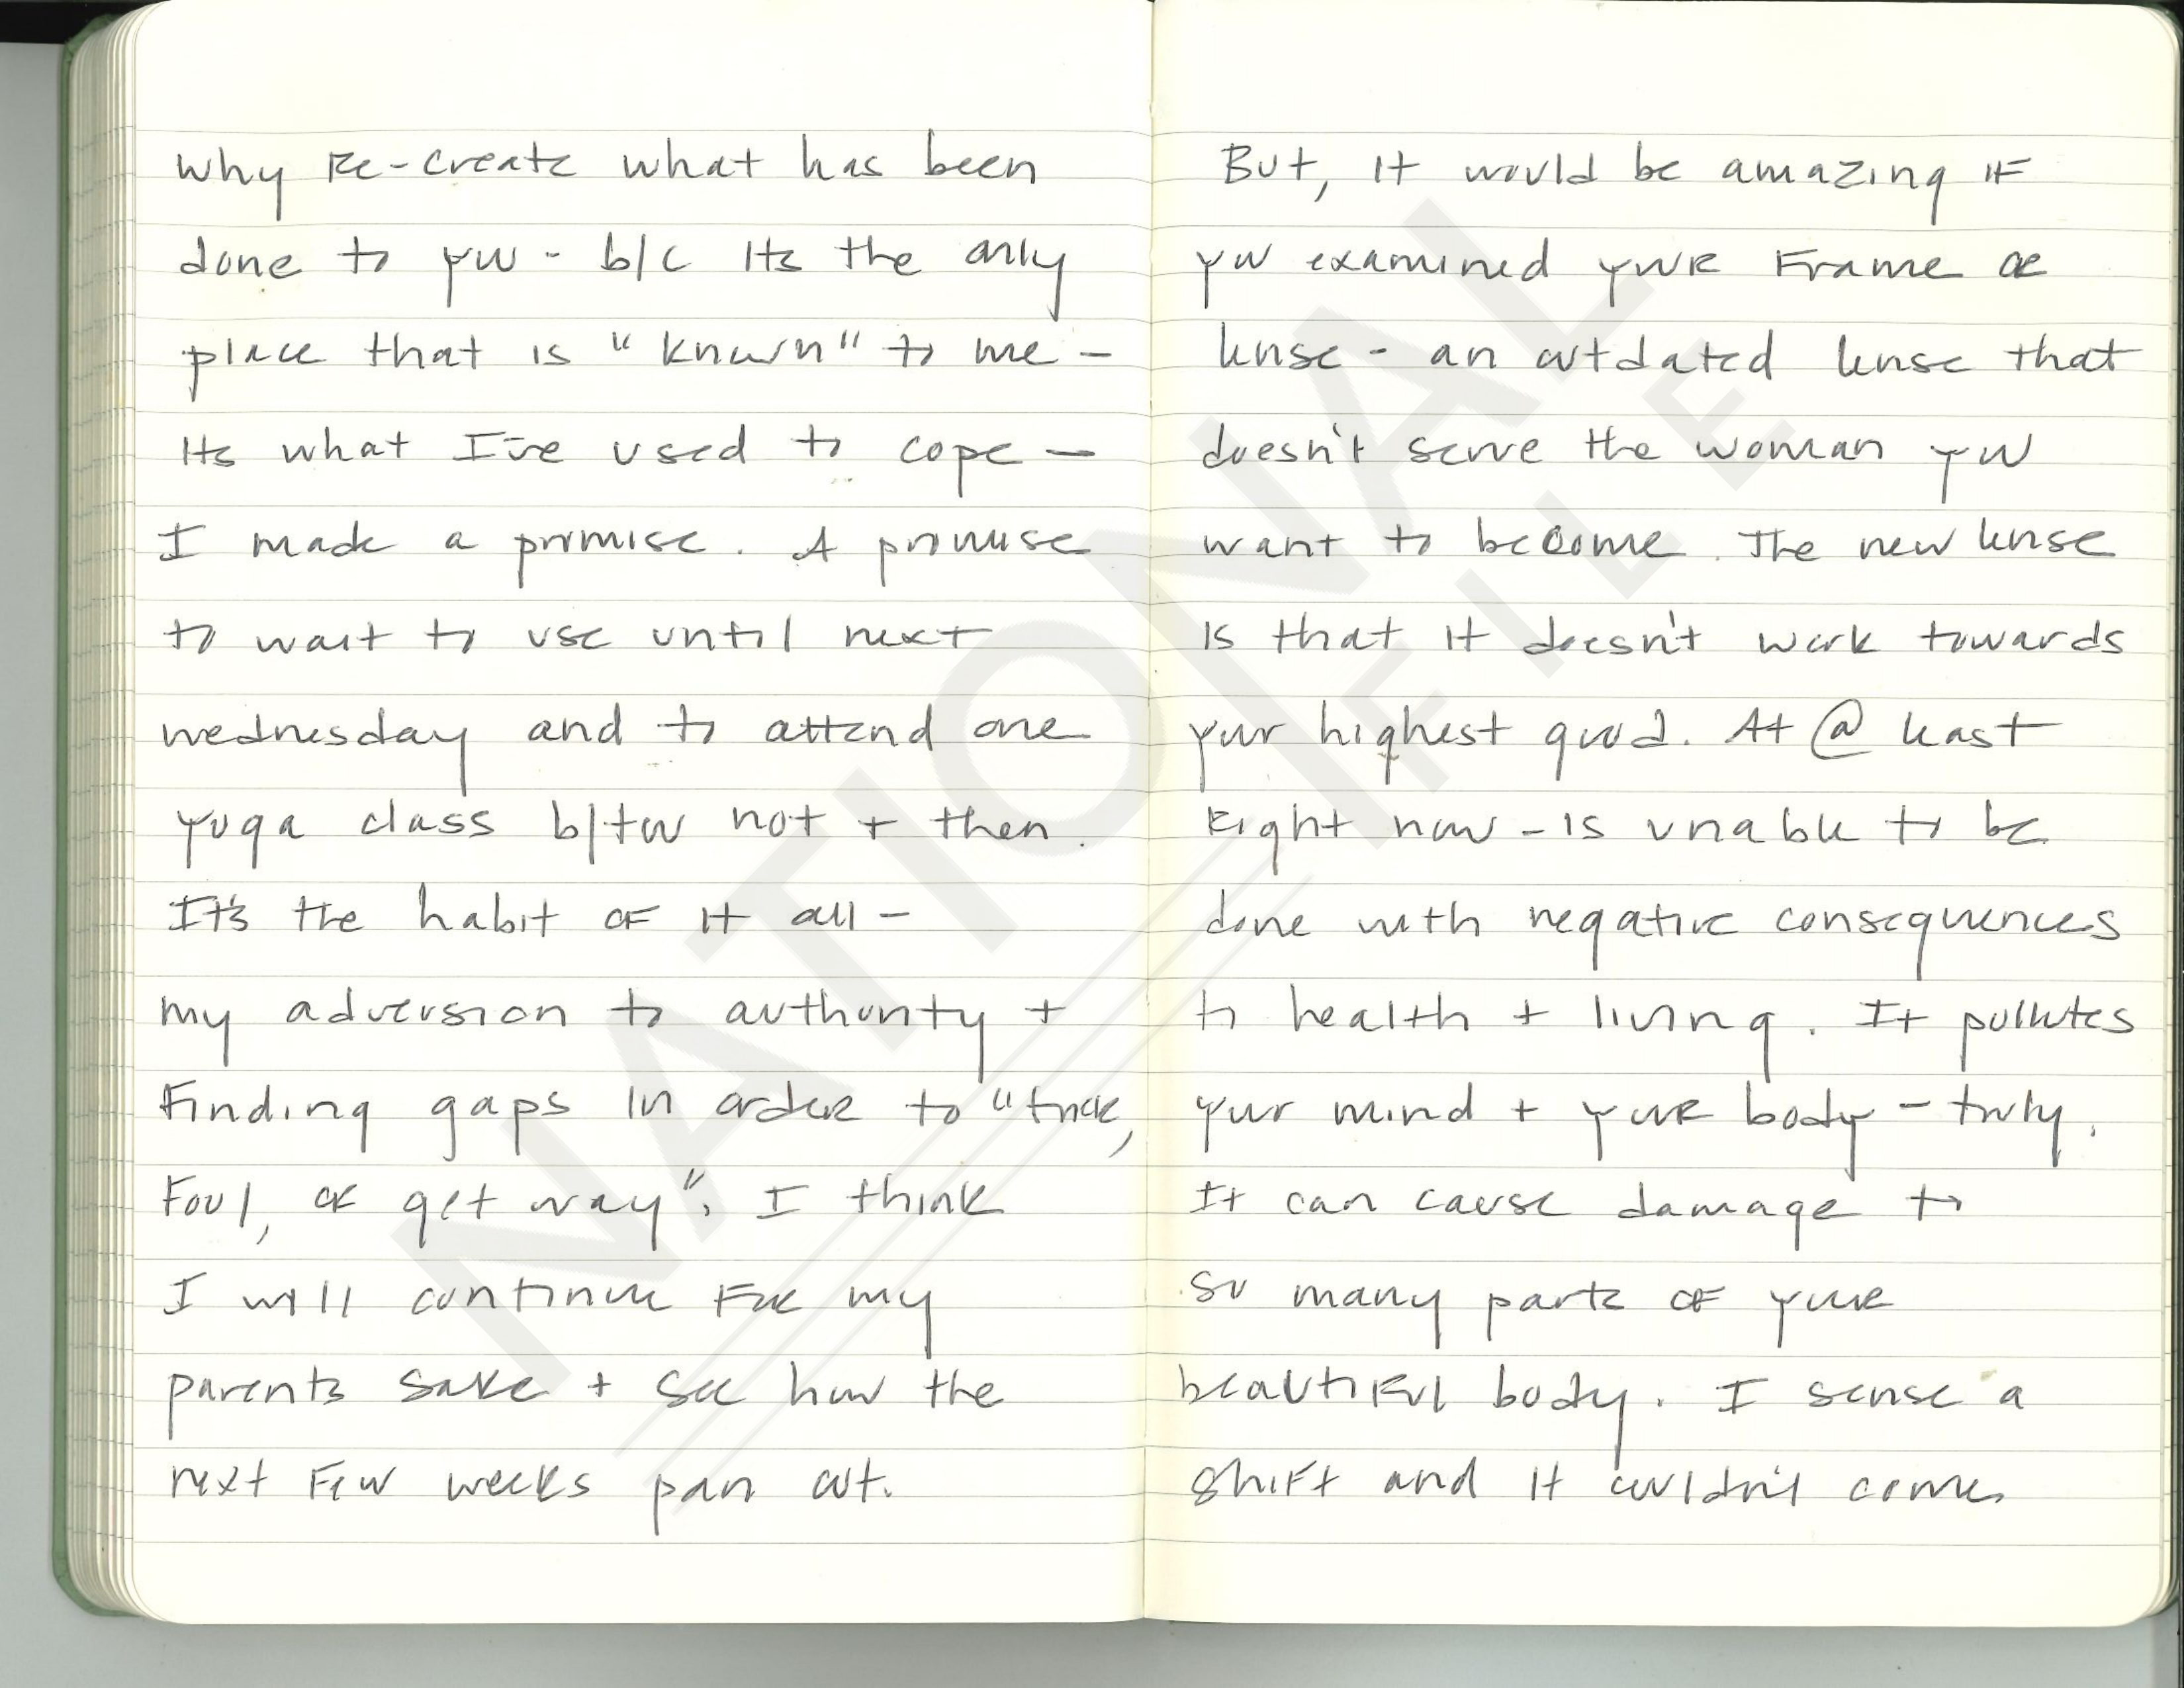 why Re-create what has been
done to you - b/c Its the only
place that is "known" to me -
Its what I've used to cope -
I made a promise. A promise
to wait to use until next
wednesday and to attend one
yoga class b/tw not + then.
It's the habit of it all -
my adversion to authority +
Finding gaps in order to "trick,
Fool, or get way". I think
I will continue For my
parents sake + see how the
next Few weeks pan out.
But, it would be amazing if
you examined your Frame or
lense - an outdated lense that
doesn't serve the woman you
want to become. The new lense
is that it doesn't work towards
your highest good. At @ least
Right now - is unable to be
done with negative consequences
to health + living. It pollutes
your mind + your body - truly.
It can cause damage to
so many parts of your
beautiful body. I sense a
shift and it couldn't come
NATIONAL
FILE